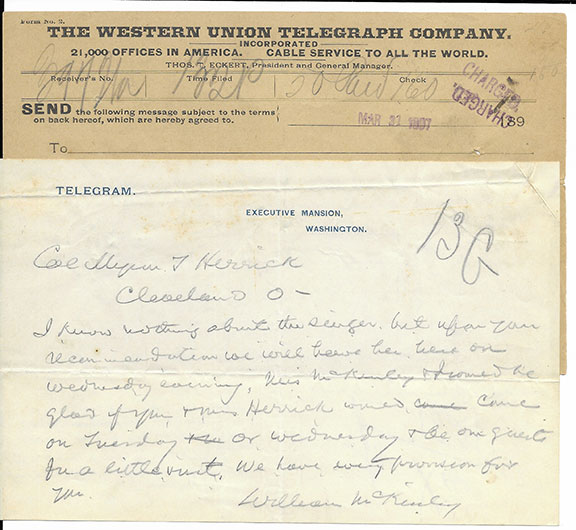 Form No. 2.
THE WESTERN UNION TELEGRAPH COMPANY.
INCORPORATED
21,000 OFFICES IN AMERICA. CABLE SERVICE TO ALL THE WORLD.
THOS. T. ECKERT, President and General Manager.
Receiver's No. Time Filed Check
CHARGED
CHARGED
SEND the following message subject to the terms
on back hereof, which are hereby agreed to.
MAR 31 1897 189
To
TELEGRAM.
EXECUTIVE MANSION,
WASHINGTON.
Col Myron T Herrick
Cleveland O-
I know nothing about the singer, but upon your
recommendation we will have her here on
Wednesday evening, Mrs McKinley & I would be
glad if you & Mrs Herrick would come come
on Tuesday or Wednesday & be our guests
for a little visit. We have every provision for
you.
William McKinley